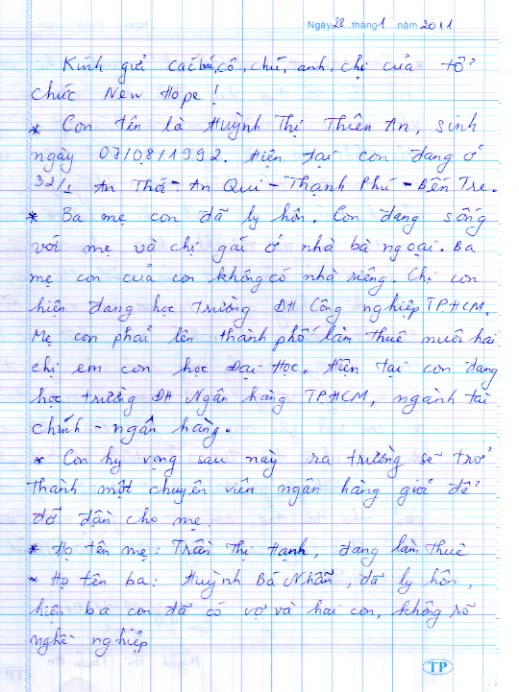 Ngày 28 tháng 1 năm 2011
Kính gửi các bác, cô, chú, anh, chị của tổ
chức New Hope!
* Con tên là Huỳnh Thị Thiên An, sinh
ngày 07/08/1992. Hiện tại con đang ở
32/1 An Thới - An Qui - Thạnh Phú - Bến Tre.
* Ba mẹ con đã ly hôn. Con đang sống
với mẹ và chị gái ở nhà bà ngoại. Ba
mẹ con của con không có nhà riêng. Chị con
hiện đang học trường ĐH Công nghiệp TPHCM.
Mẹ con phải lên thành phố làm thuê nuôi hai
chị em con học Đại Học. Hiện tại con đang
học trường ĐH Ngân hàng TPHCM, ngành tài
chính - ngân hàng.
* Con hy vọng sau này ra trường sẽ trở
thành một chuyên viên ngân hàng giỏi để
đỡ đần cho mẹ.
* Họ tên mẹ: Trần Thị Hạnh, đang làm thuê
* Họ tên ba: Huỳnh Bá Nhẫn, đã ly hôn,
hiện ba con đã có vợ và hai con, không rõ
nghề nghiệp
TP